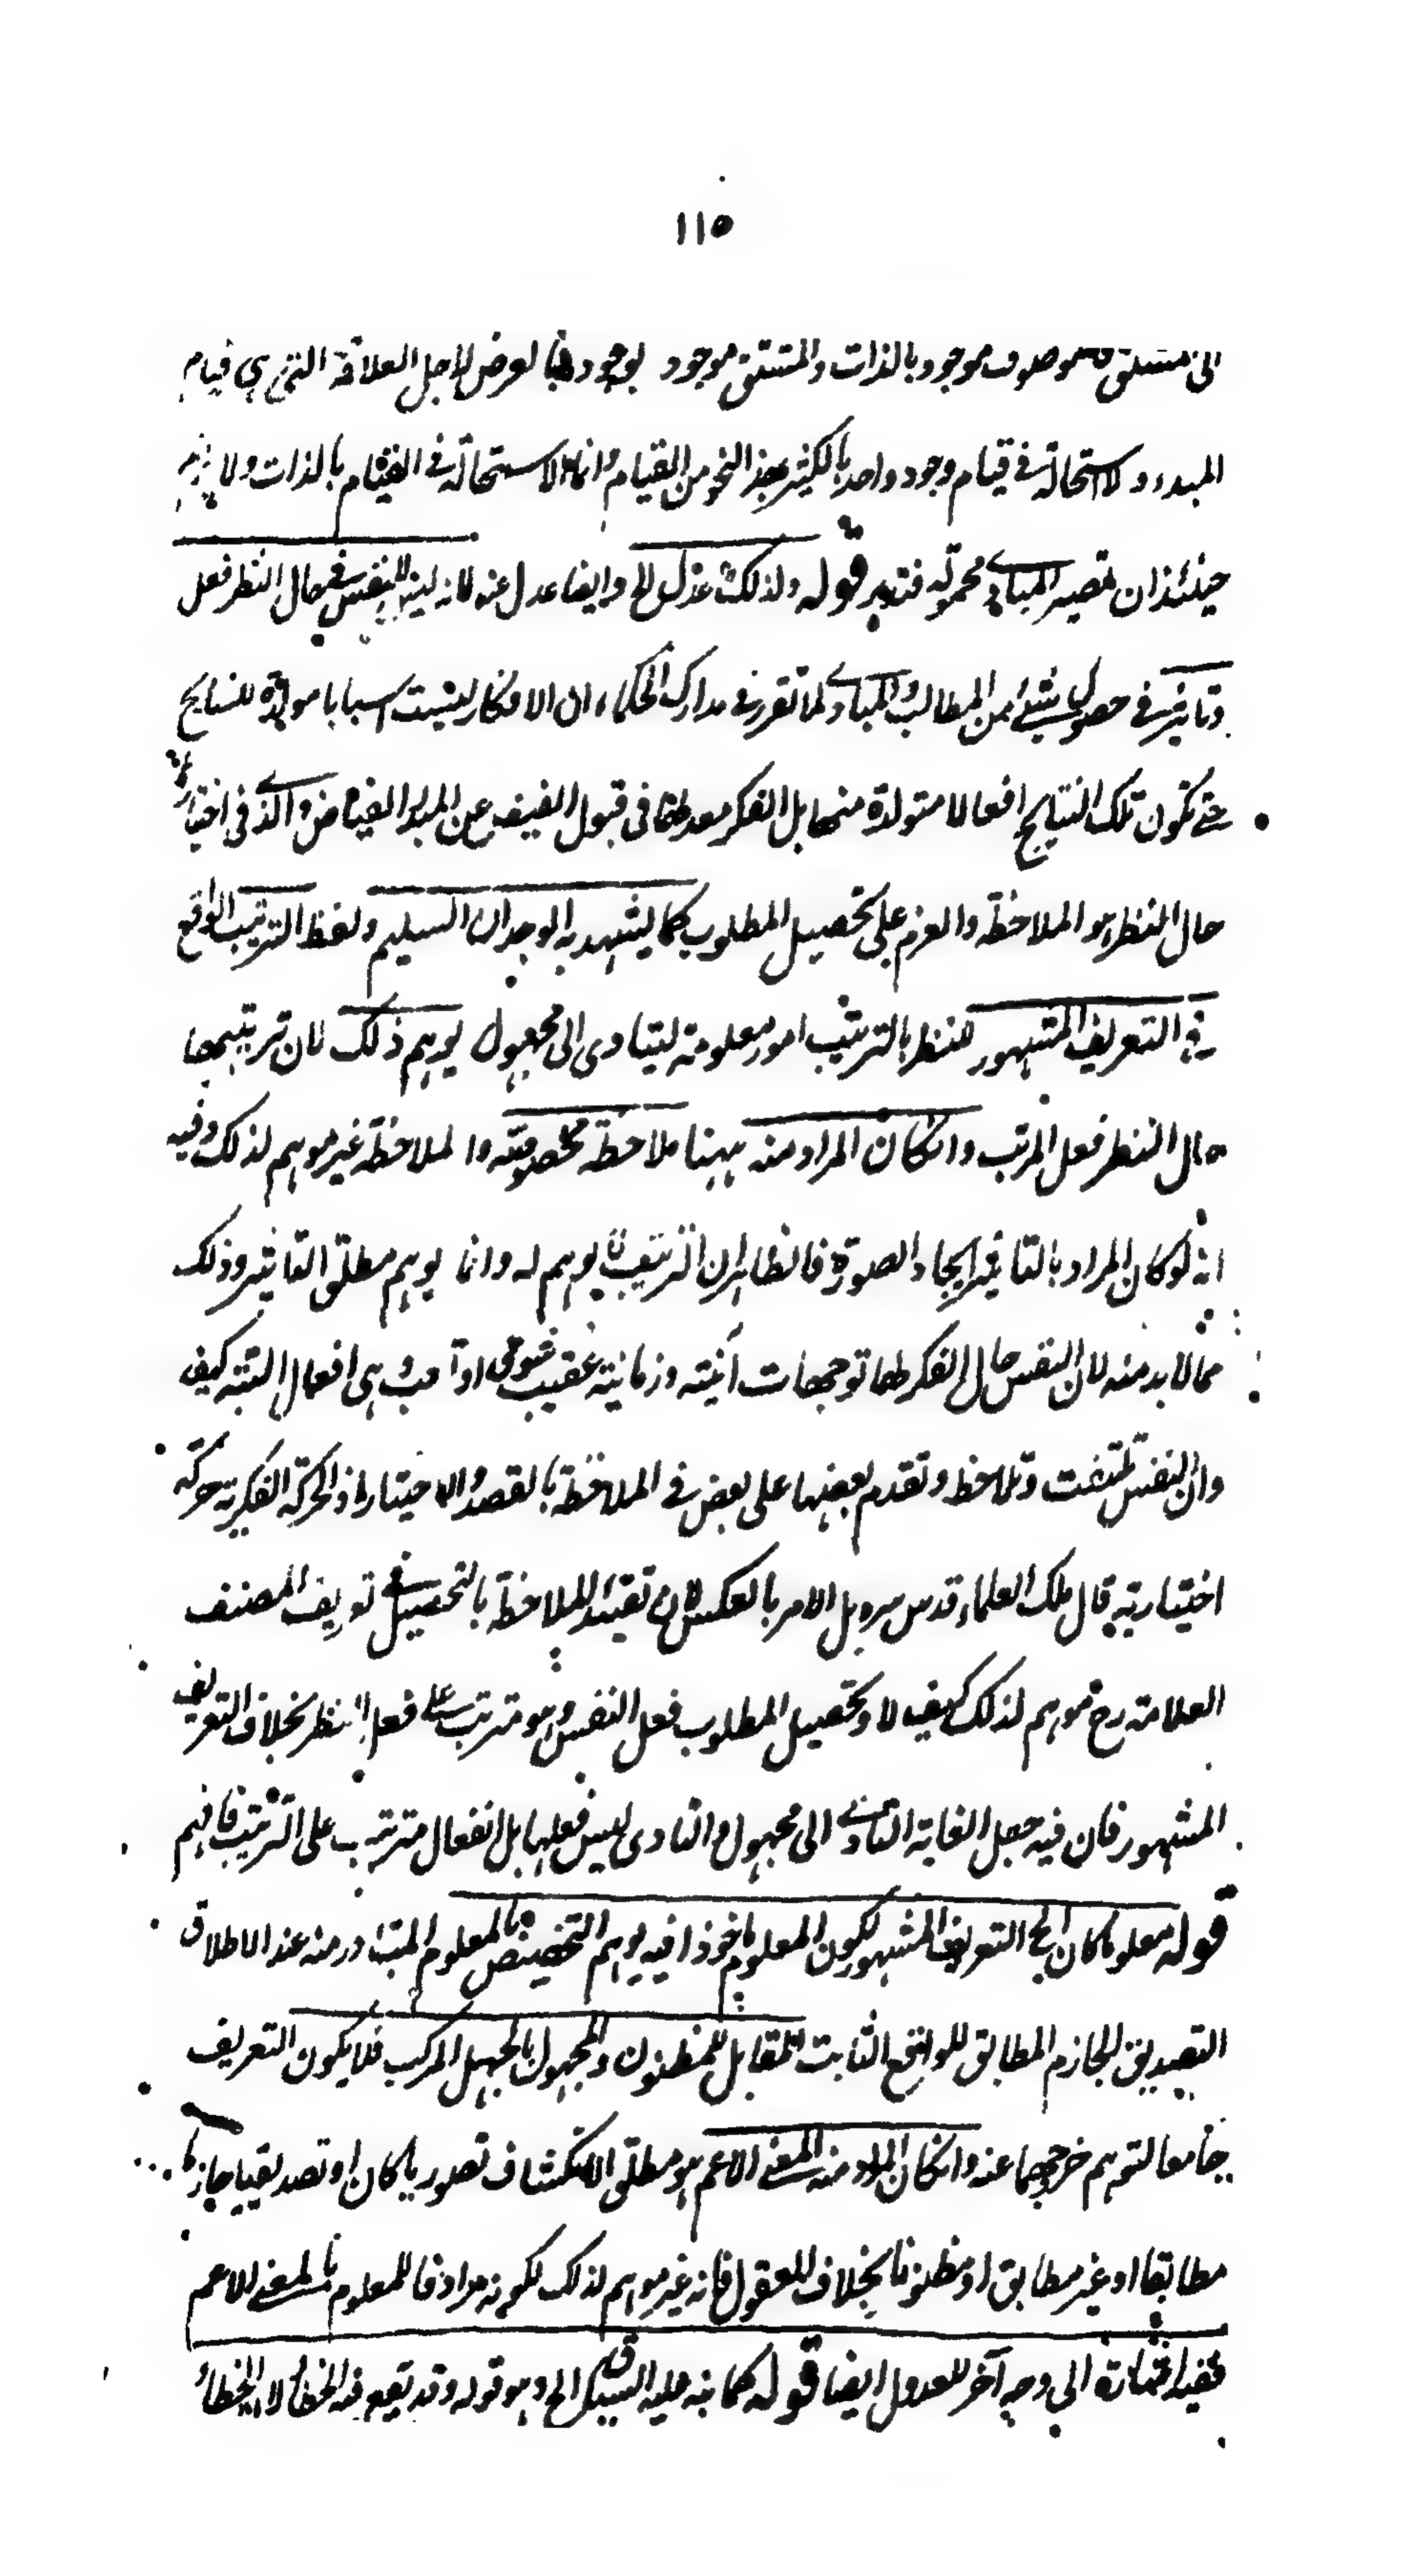 ١١٥
الموصوف موجود بالذات والمشتق موجود بوجوده بالعرض لاجل العلاقة التى هي قيام
المبدء ولا استحالة في قيام وجود واحد بالكثير بهذا النحو من القيام وانما الاستحالة في القيام بالذات ولا يلزم
حينئذ ان تصير المبادى محمولة فتدبر قوله ولذلك عدل الخ وايضا عدل عنه لانه ليس للنفس في حال النظر فعل
وتاثير في حصول شئ من المطالب والمبادى لما تقرر في مدارك الحكماء ان الافكار ليست اسبابا مولدة للنتايج
حتى تكون تلك النتايج افعالا متولدة منها بل الفكر معد لها فى قبول الفيض عن المبدء الفياض والذى فى اختيارها
حال النظر هو الملاحظة والعزم على تحصيل المطلوب كما يشهد به الوجدان السليم ولفظ الترتيب الواقع
في التعريف المشهور للنظر بالترتيب امور معلومة ليتادى الى مجهول يوهم ذلك لان ترتيبها
حال النظر فعل المرتب وانكان المراد منه ههنا ملاحظة مخصوصة والملاحظة غير موهم لذلك وفيه
انه لو كان المراد بالتاثير ايجاد الصورة فالظاهر ان الترتيب لا يوهم له وانما يوهم مطلق التاثير وذلك
مما لا بد منه لان النفس حال الفكر لها توجهات آنية وزمانية عقيب شوقى هى افعال البتة كيف
وان النفس تلتفت وتلاحظ وتقدم بعضها على بعض في الملاحظة بالقصد والاختيار اذ الحركة الفكرية حركة
اختيارية قال ملك العلماء قدس سره بل الامر بالعكس لان تقييد الملاحظة بالتحصيل في تعريف المصنف
العلامة رح موهم لذلك كيف لا وتحصيل المطلوب فعل النفس وهو مترتب على فعل النظر بخلاف التعريف
المشهور فان فيه جعل الغاية التادى الى مجهول والتادى ليس فعلها بل انفعال مترتب على الترتيب فافهم
قوله معلوما كان الخ التعريف المشهور لكون المعلوم ماخوذا فيه يوهم التخصيص بالمعلوم المتبادر منه عند الاطلاق
التصديق الجازم المطابق للواقع الثابت المقابل للمظنون والمجهول بالجهل المركب فلا يكون التعريف
جامعا لتوهم خروجهما عنه وانكان المراد منه المعنى الاعم هو مطلق الانكشاف تصوريا كان او تصديقيا جازما
مطابقا او غير مطابق او مظنونا بخلاف المعقول فانه غير موهم لذلك لكونه مرادفا للمعلوم بالمعنى الاعم
ففيه اشارة الى وجه آخر للعدول ايضا قوله كما نبه عليه السيد الخ وهو قوله وقد يقع فيه الخطأ لان الخطأ